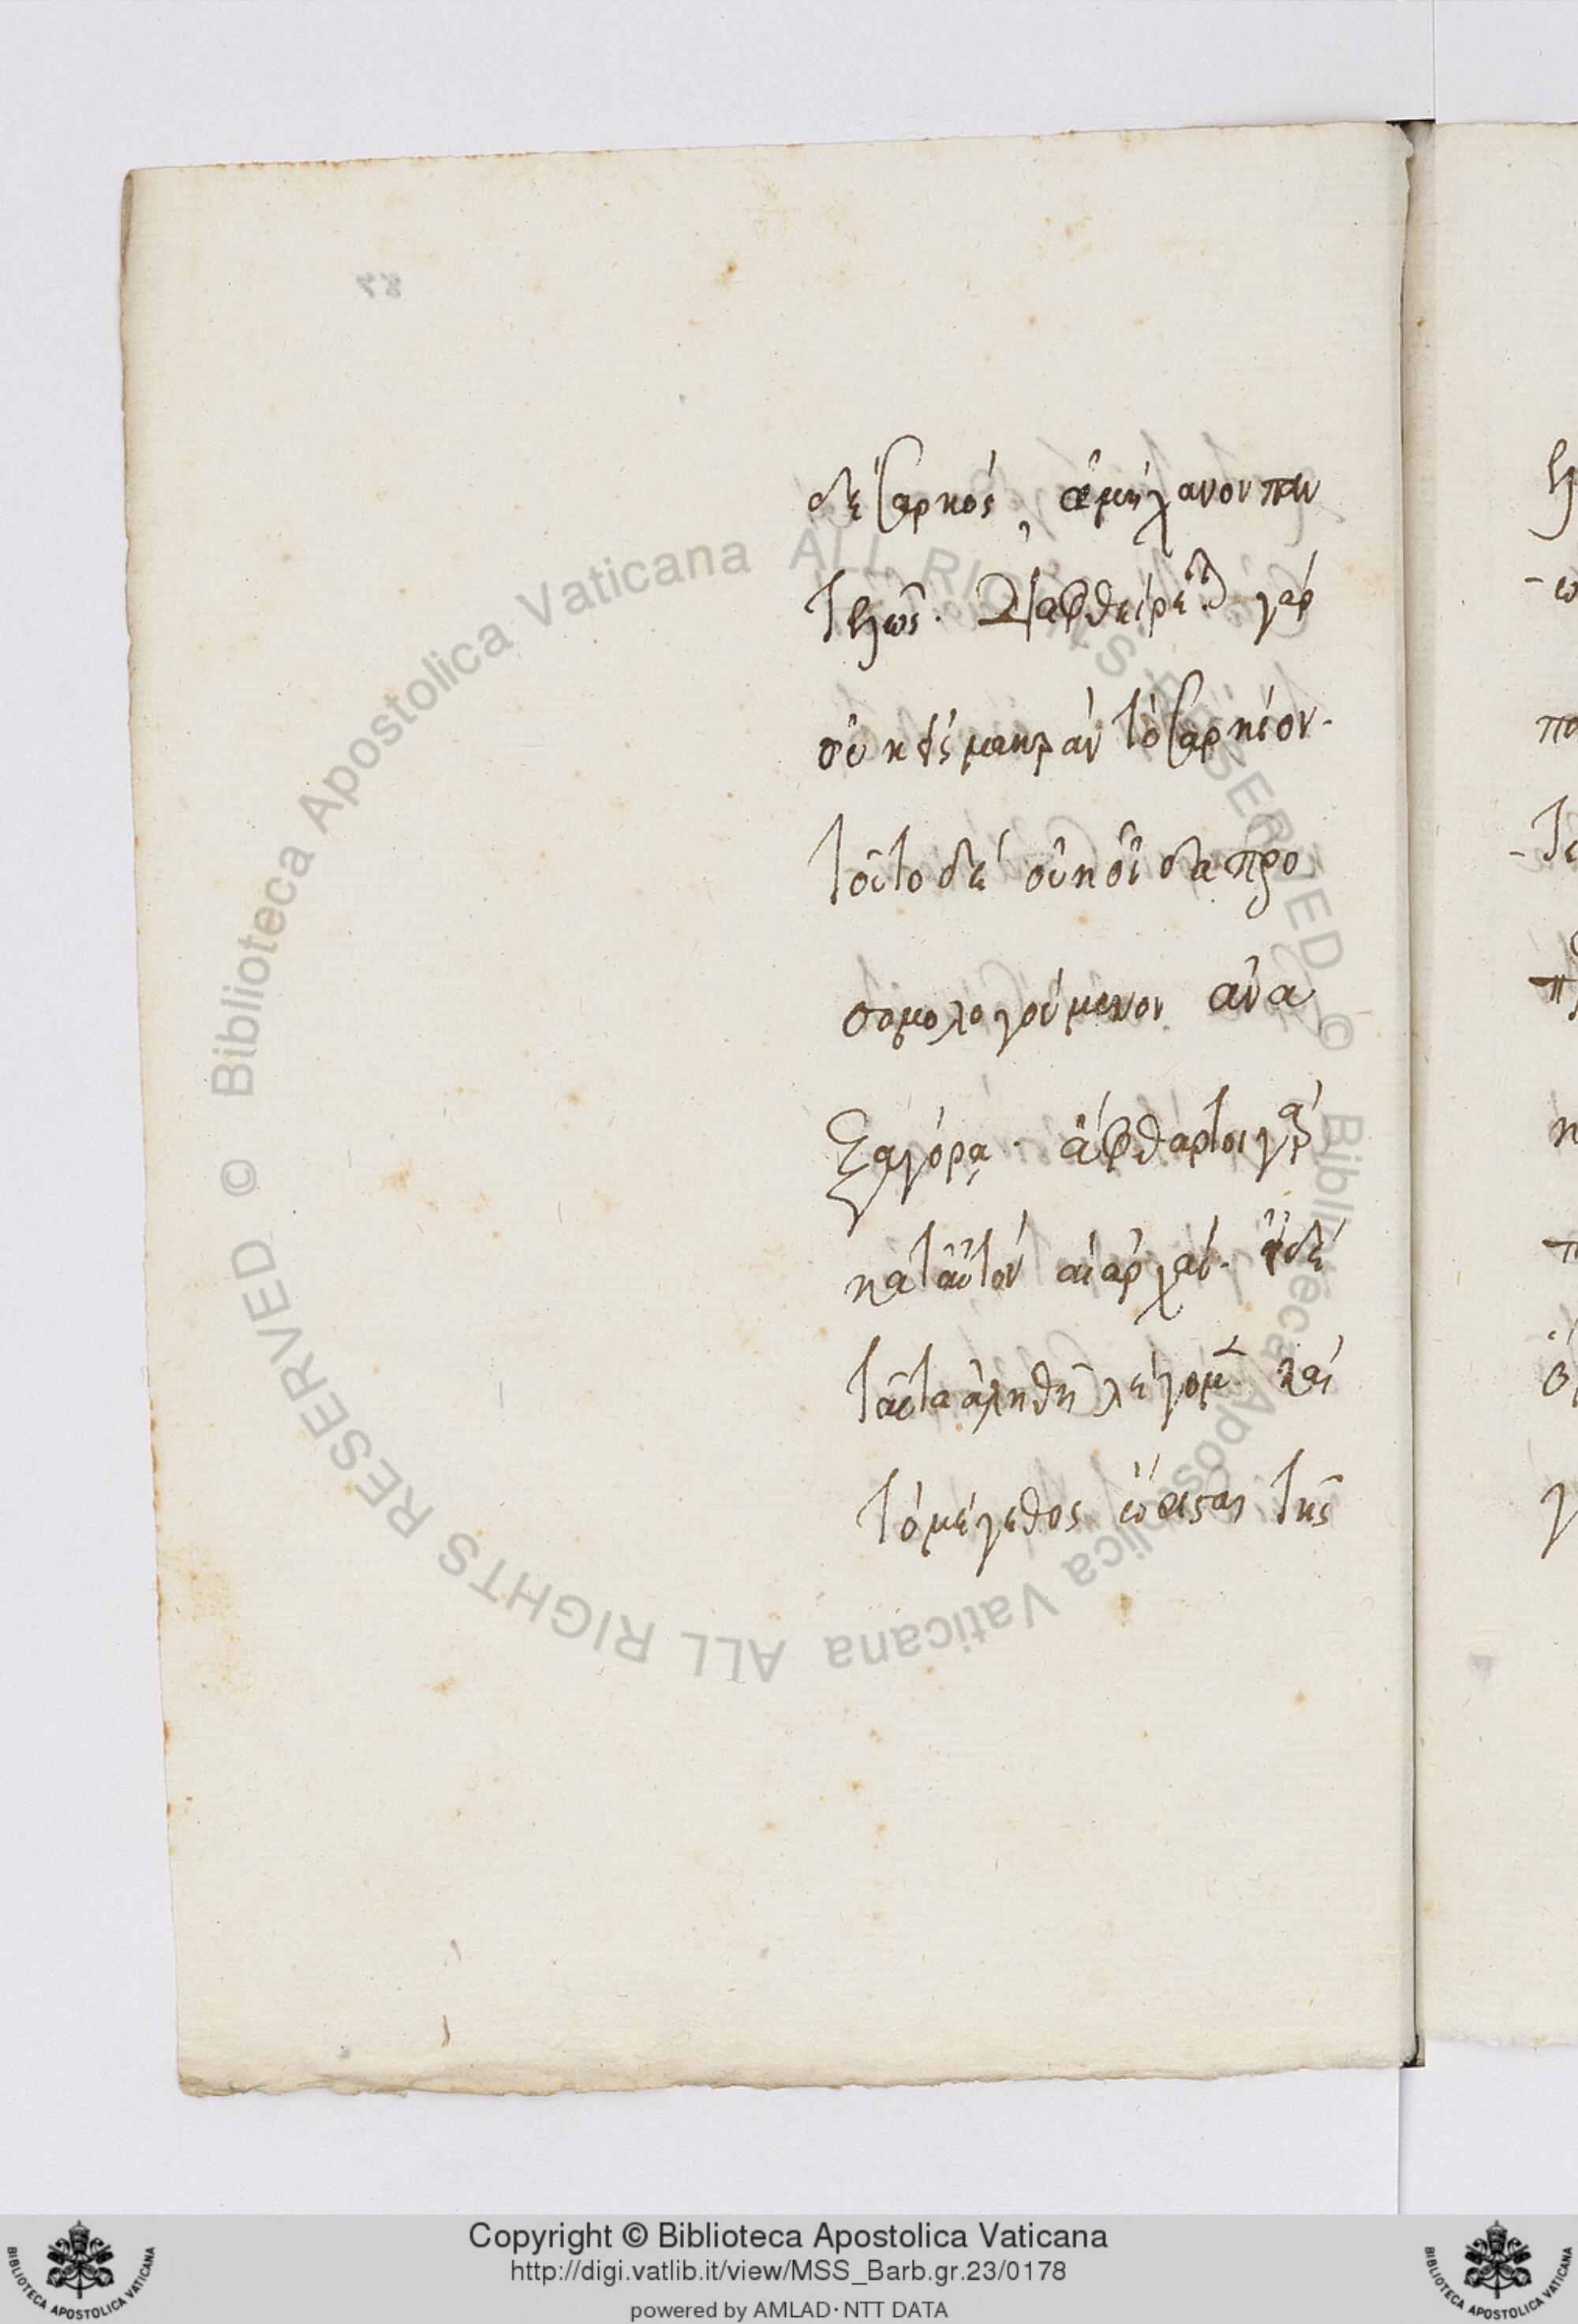 δὲ σαρκός, ἀμήχανον παν
τελῶς. διαφθείρεται γάρ
οὐκ εἰς μακρὰν τὸ σαρκίον.
τοῦτο δὲ οὐκ οἶδα προ
σομολογούμενον ἀνα
ξαγόρᾳ. ἄφθαρτοι γάρ
κατ αὐτὸν αἱ ἀρχαί. εἰ δὲ
ταῦτα ἀληθῆ λέγομεν καὶ
τὸ μέγεθος ὥρισται τῆς
Copyright © Biblioteca Apostolica Vaticana
http://digi.vatlib.it/view/MSS_Barb.gr.23/0178
powered by AMLAD·NTT DATA
© Biblioteca Apostolica Vaticana ALL RIGHTS RESERVED © Biblioteca Apostolica Vaticana ALL RIGHTS RESERVED
BIBLIOTECA APOSTOLICA VATICANA
BIBLIOTECA APOSTOLICA VATICANA